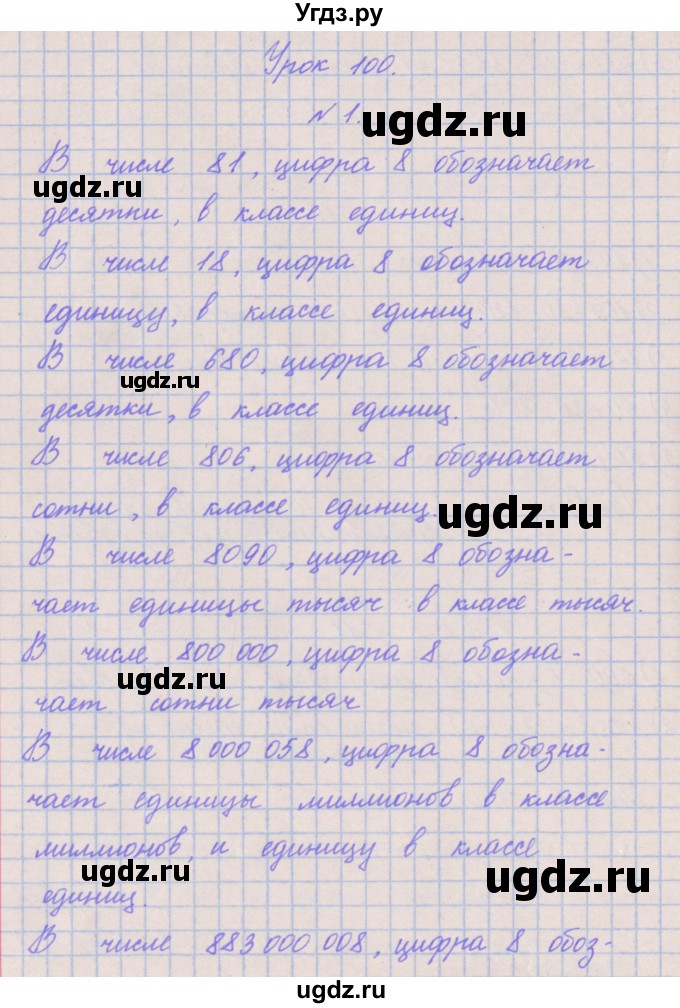 Угдз.ру
Урок 100.
N 1.
ugdz.ru
В числе 81, цифра 8 обозначает
ugdz.ru
десятки, в классе единиц.
В числе 18, цифра 8 обозначает
единицу, в классе единиц.
В числе 680, цифра 8 обозначает
ugdz.ru
десятки, в классе единиц.
В числе 806, цифра 8 обозначает
сотни, в классе единиц.
ugdz.ru
В числе 8090, цифра 8 обозна-
чает единицы тысяч в классе тысяч.
В числе 800 000, цифра 8 обозна-
ugdz.ru
чает сотни тысяч
В числе 8 000 058, цифра 8 обозна-
чает единицы миллионов в классе
миллионов, и единицу в классе
ugdz.ru
ugdz.ru
единиц.
В числе 883 000 008, цифра 8 обоз-
ugdz.ru